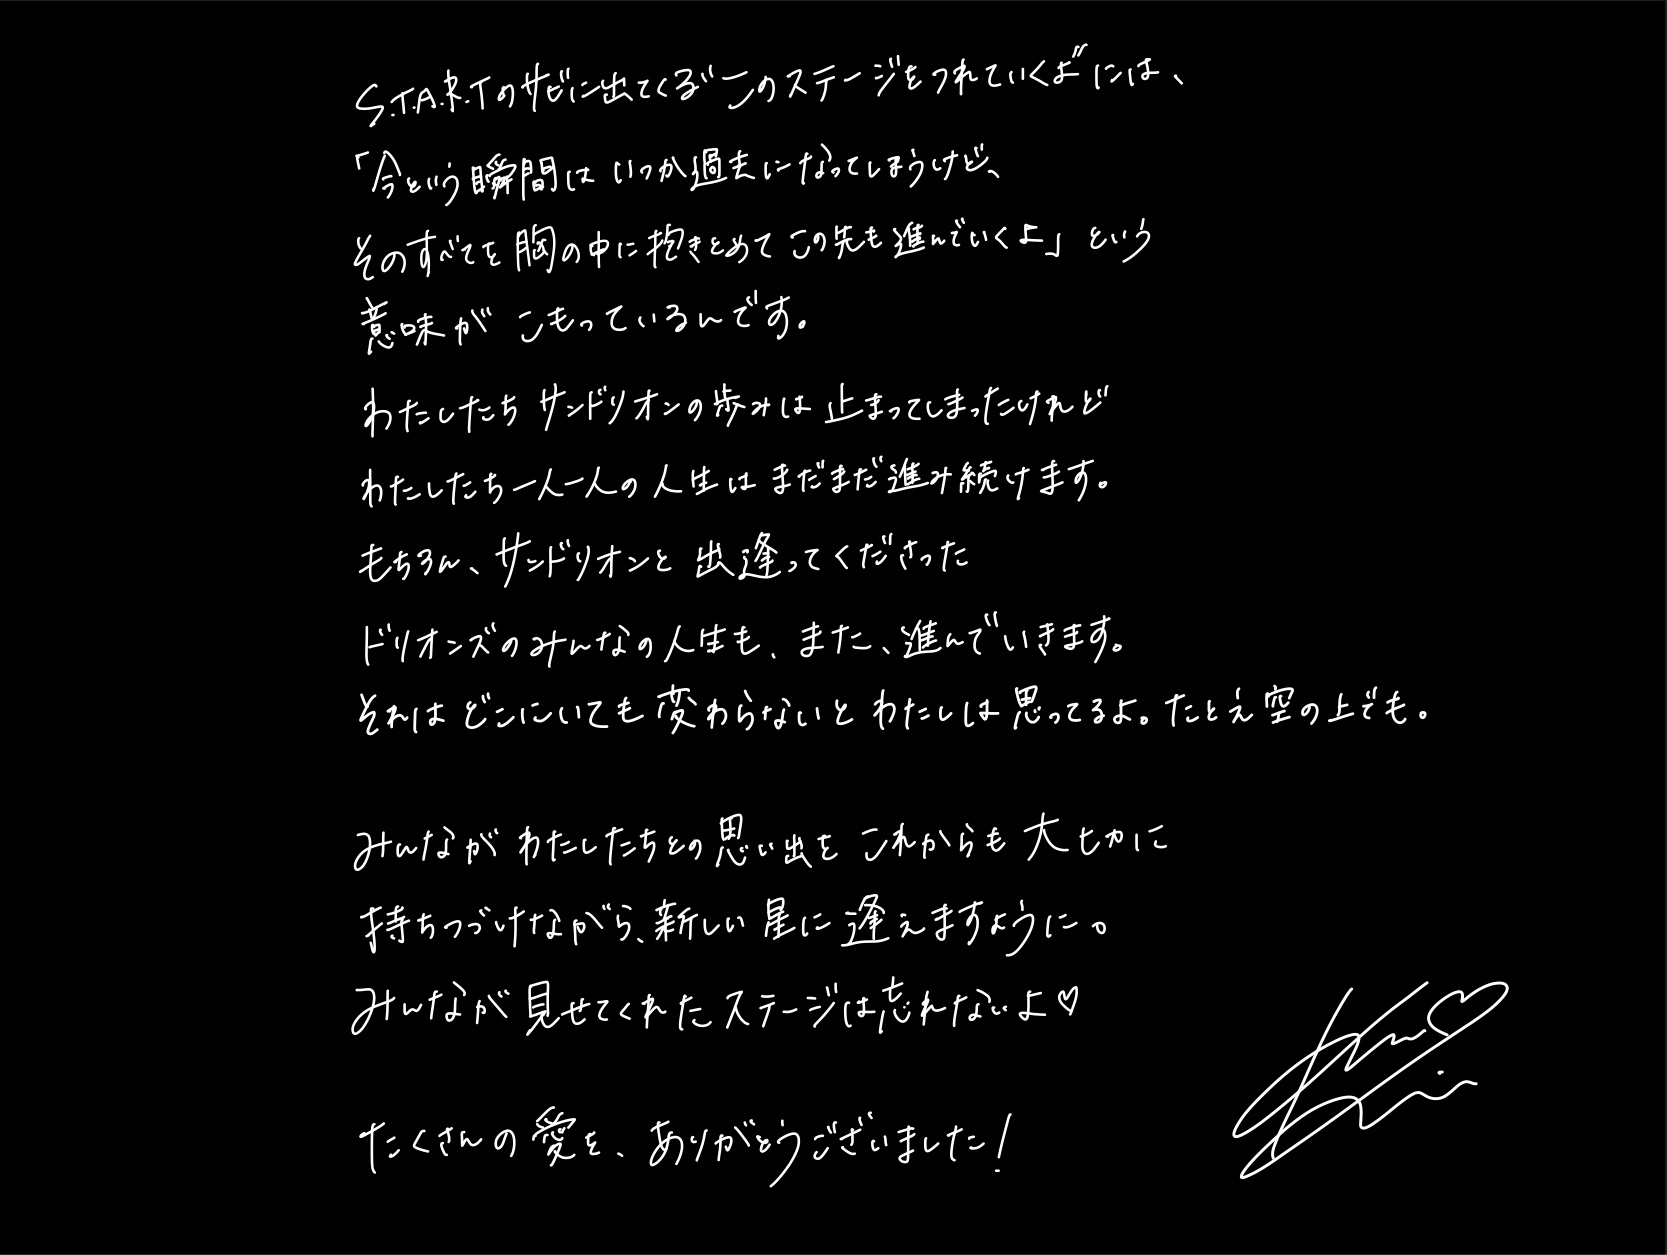 S.T.A.R.Tのサビに出てくる"このステージをつれていくよ"には、
「今という瞬間はいつか過去になってしまうけど、
そのすべてを胸の中に抱きとめてこの先も進んでいくよ」という
意味がこもっているんです。
わたしたちサンドリオンの歩みは止まってしまったけれど
わたしたち一人一人の人生はまだまだ進み続けます。
もちろん、サンドリオンと出逢ってくださった
ドリオンズのみんなの人生も、また、進んでいきます。
それはどこにいても変わらないとわたしは思ってるよ。たとえ空の上でも。
みんながわたしたちとの思い出をこれからも大切に
持ちつづけながら、新しい星に逢えますように。
みんなが見せてくれたステージは忘れないよ♡
たくさんの愛を、ありがとうございました!